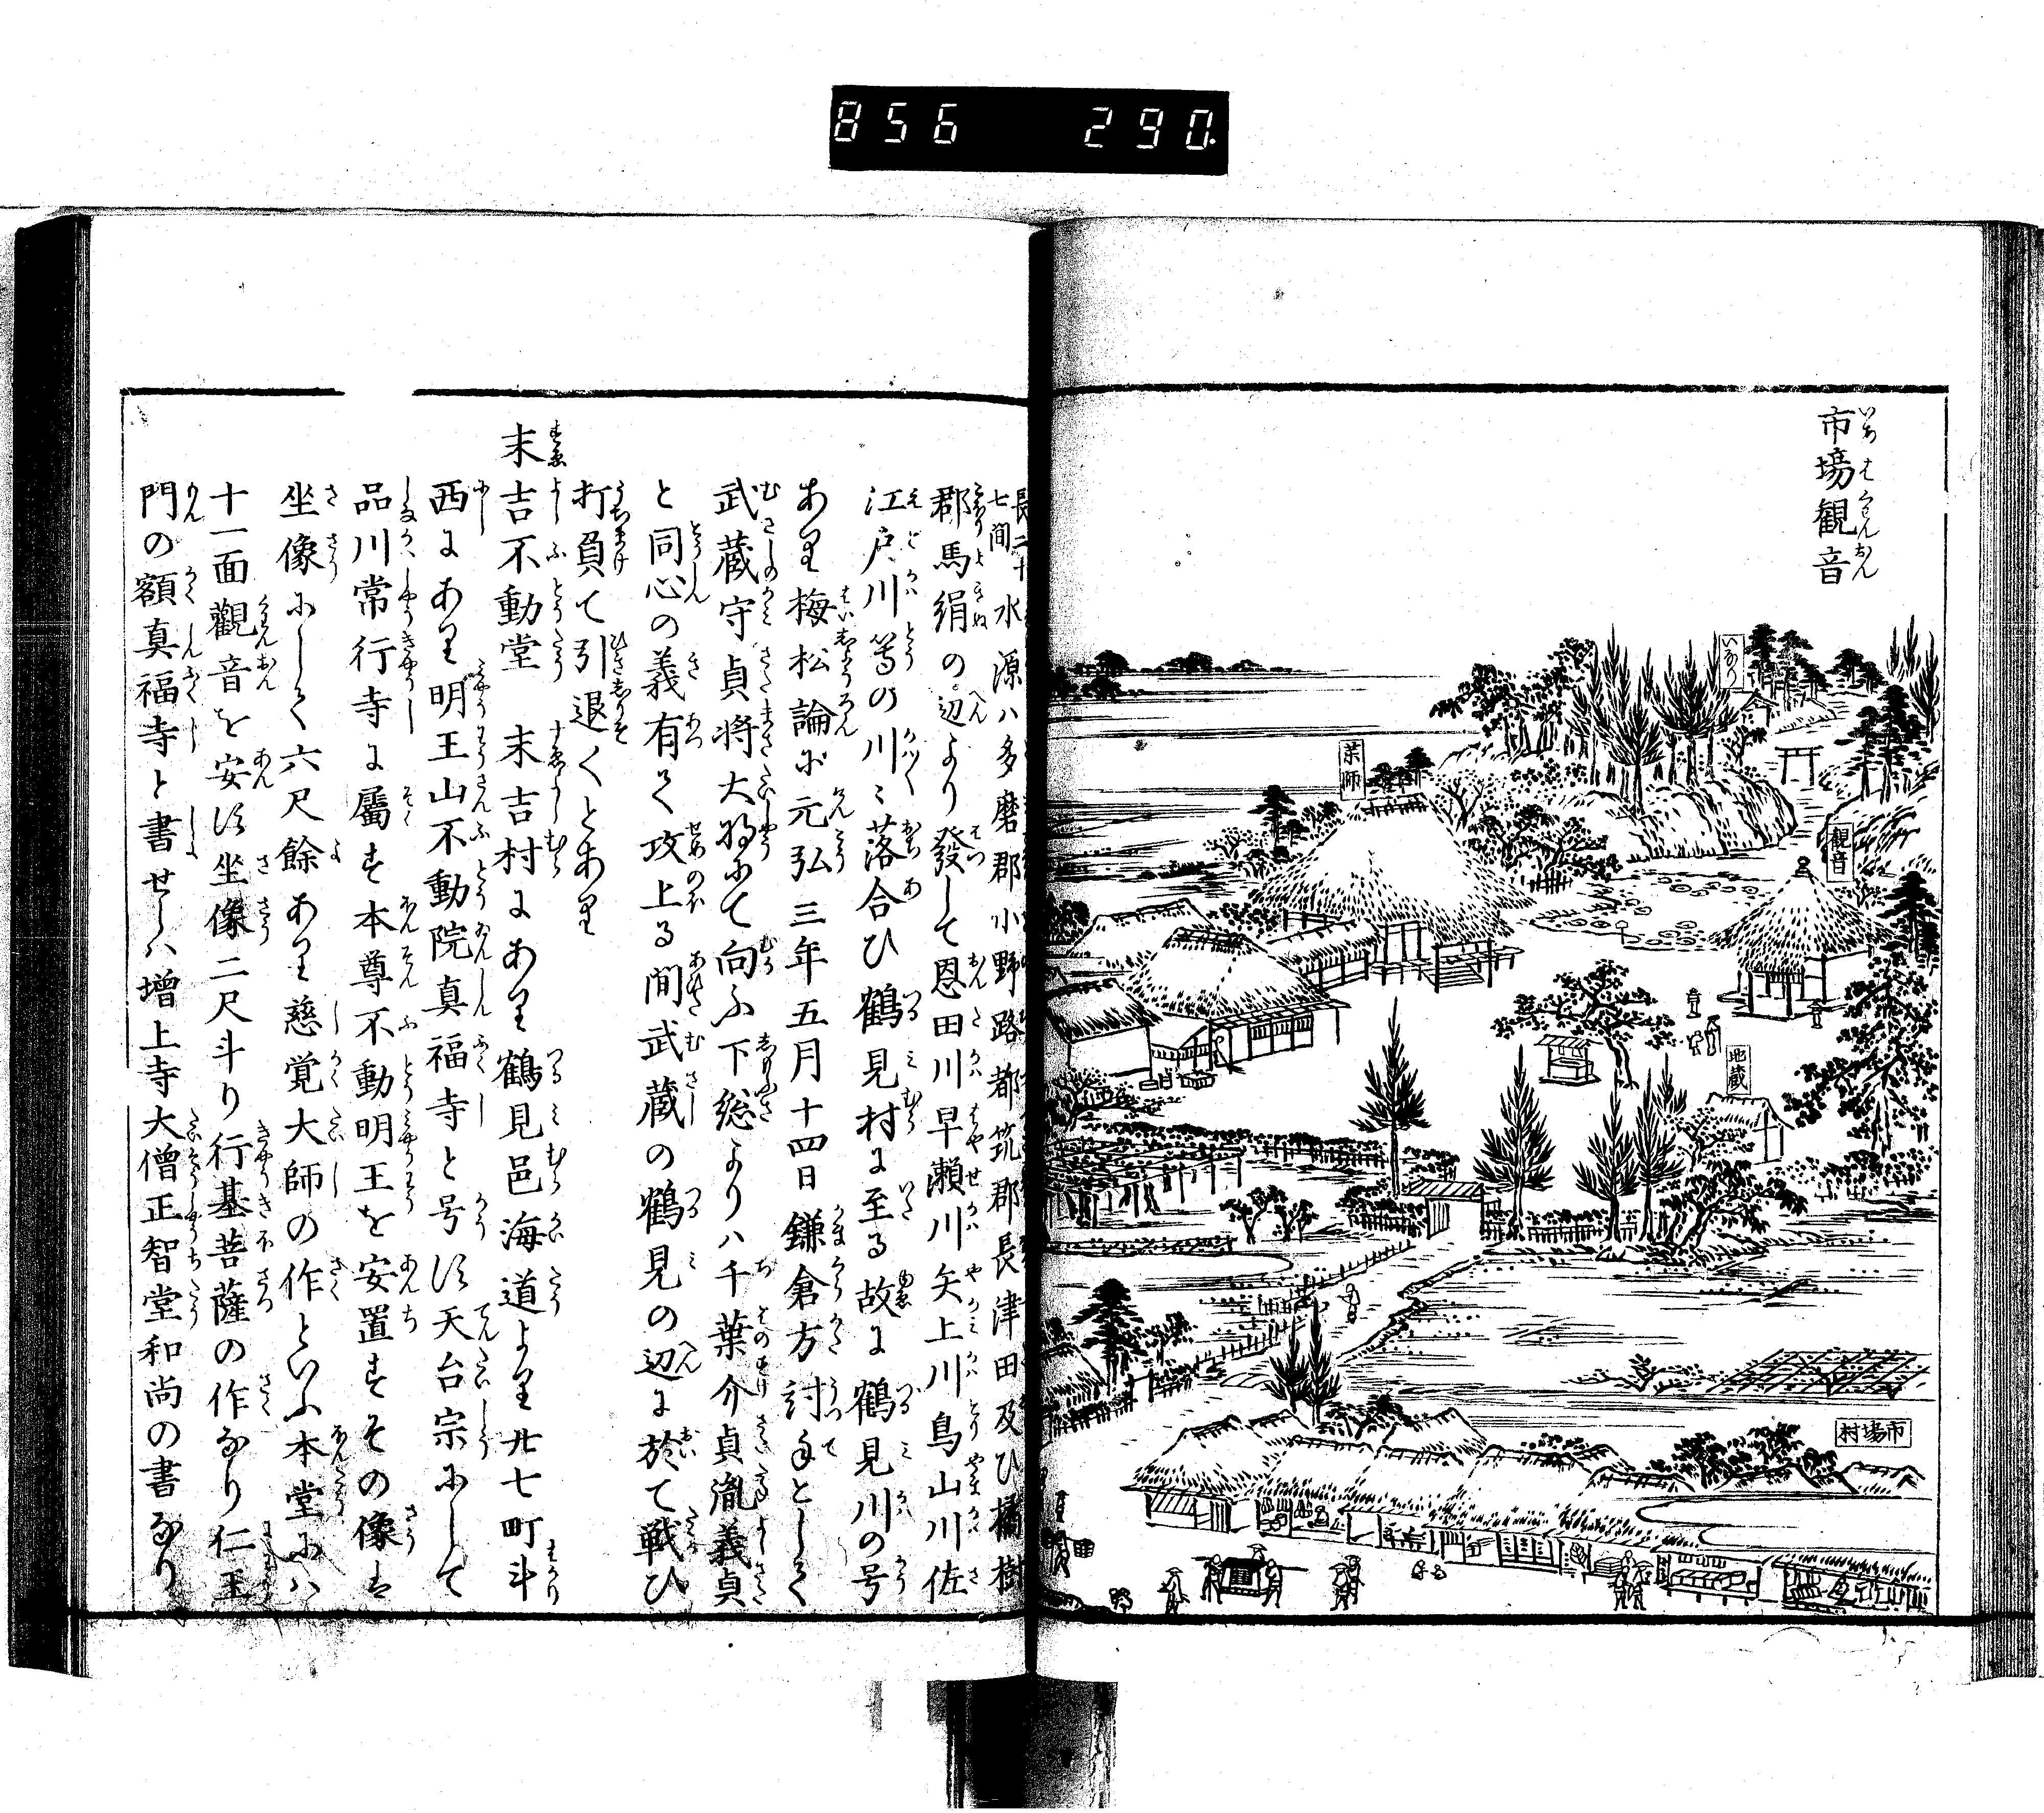 856 290
市場観音
いちばくわんおん
いなり
薬師
観音
地蔵
市場村
長二十七間水源ハ多磨郡小野路都筑郡長津田及ひ橘樹
郡馬絹の辺より發して恩田川早瀬川矢上川鳥山川佐
江戸川等の川〻落合ひ鶴見村に至る故に鶴見川の号
あり梅松論に元弘三年五月十四日鎌倉方討手として
武蔵守貞将大将にて向ふ下総よりハ千葉介貞胤義貞
と同心の義有て攻上る間武蔵の鶴見の辺に於て戦ひ
打負て引退くとあり
末吉不動堂 末吉村にあり鶴見邑海道より廿七町斗
西にあり明王山不動院真福寺と号す天台宗にして
品川常行寺に屬す本尊不動明王を安置すその像は
坐像にして六尺餘あり慈覚大師の作といふ本堂にハ
十一面觀音を安す坐像二尺斗り行基菩薩の作なり仁王
門の額真福寺と書せしハ増上寺大僧正智堂和尚の書なり